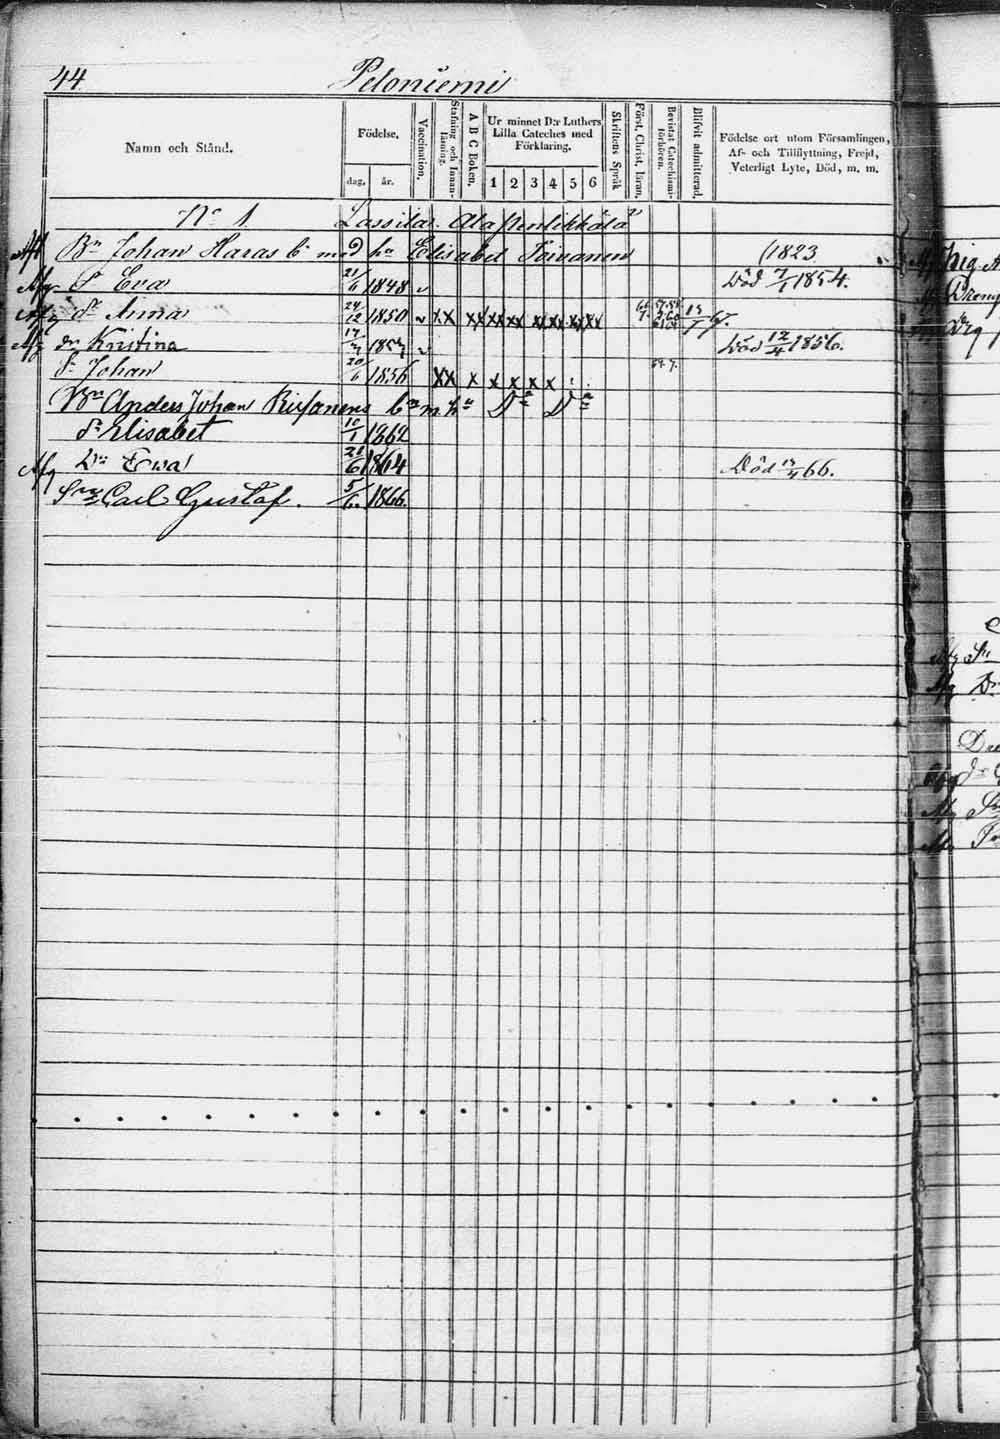 44 Peloniemi
Namn och Stånd.
Födelse,
dag. år.
Vaccination.
Stafning och Innan-läsning.
A B C Boken.
Ur minnet D:r Luthers Lilla Cateches med Förklaring.
1 2 3 4 5 6
Skriftens Språk
Först. Christ. läran.
Bevistat Catechismi-förhören.
Blifvit admitterad.
Födelse ort utom Församlingen,
Af- och Tillflyttning, Frejd,
Veterligt Lyte, Död, m. m.
No 1 Lassila
Bn Johan Haras bn med hu Elisabet Toivanen (1823
Afg Eva 21/6 1848 Död 7/1 1854.
Afg Dr Anna 24/12 1850 x x x x x x x x x x x x 67.
Afg dr Kristina 17/7 185 Död 12/4 1856.
Sn Johan 20/6 1856 x x x x x x x
Bn Anders Johan bn m hu Dn Dn
dr Elisabet 10/1 1862
Afg Dr Ewa 21/6 1864 Död 66.
Sn Carl Gustaf. 5/6. 1866.